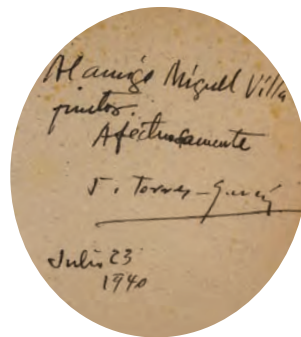 Al amigo Miguel Villa
pintor.
Afectuosamente
J. Torres-García
Julio 23
1940